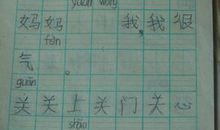 yuàn wàng
妈妈 我我很
fèn
气
guān
关关上关门关心
shàng